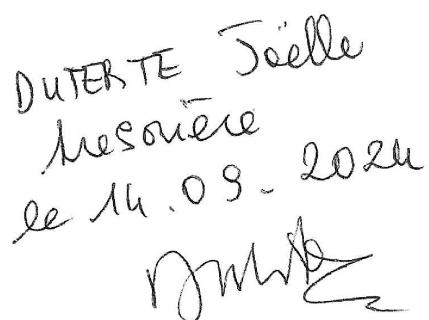 DUTERTE Joëlle
tresorière
le 14.09-2024